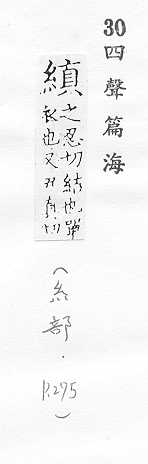 30四聲篇海
縝之忍切結也單
衣也又丑真切
(糸部.
P.295
)